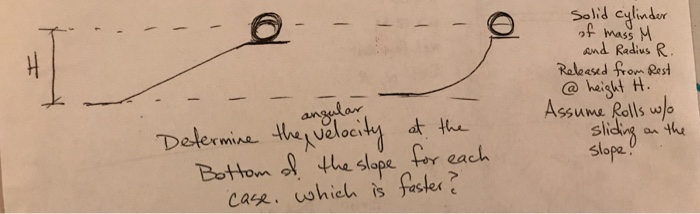 H
Solid cylinder
of mass M
and Radius R.
Released from Rest
@ height H.
Assume Rolls w/o
sliding on the
slope.
angular
Determine the velocity at the
Bottom of the slope for each
case. which is faster?